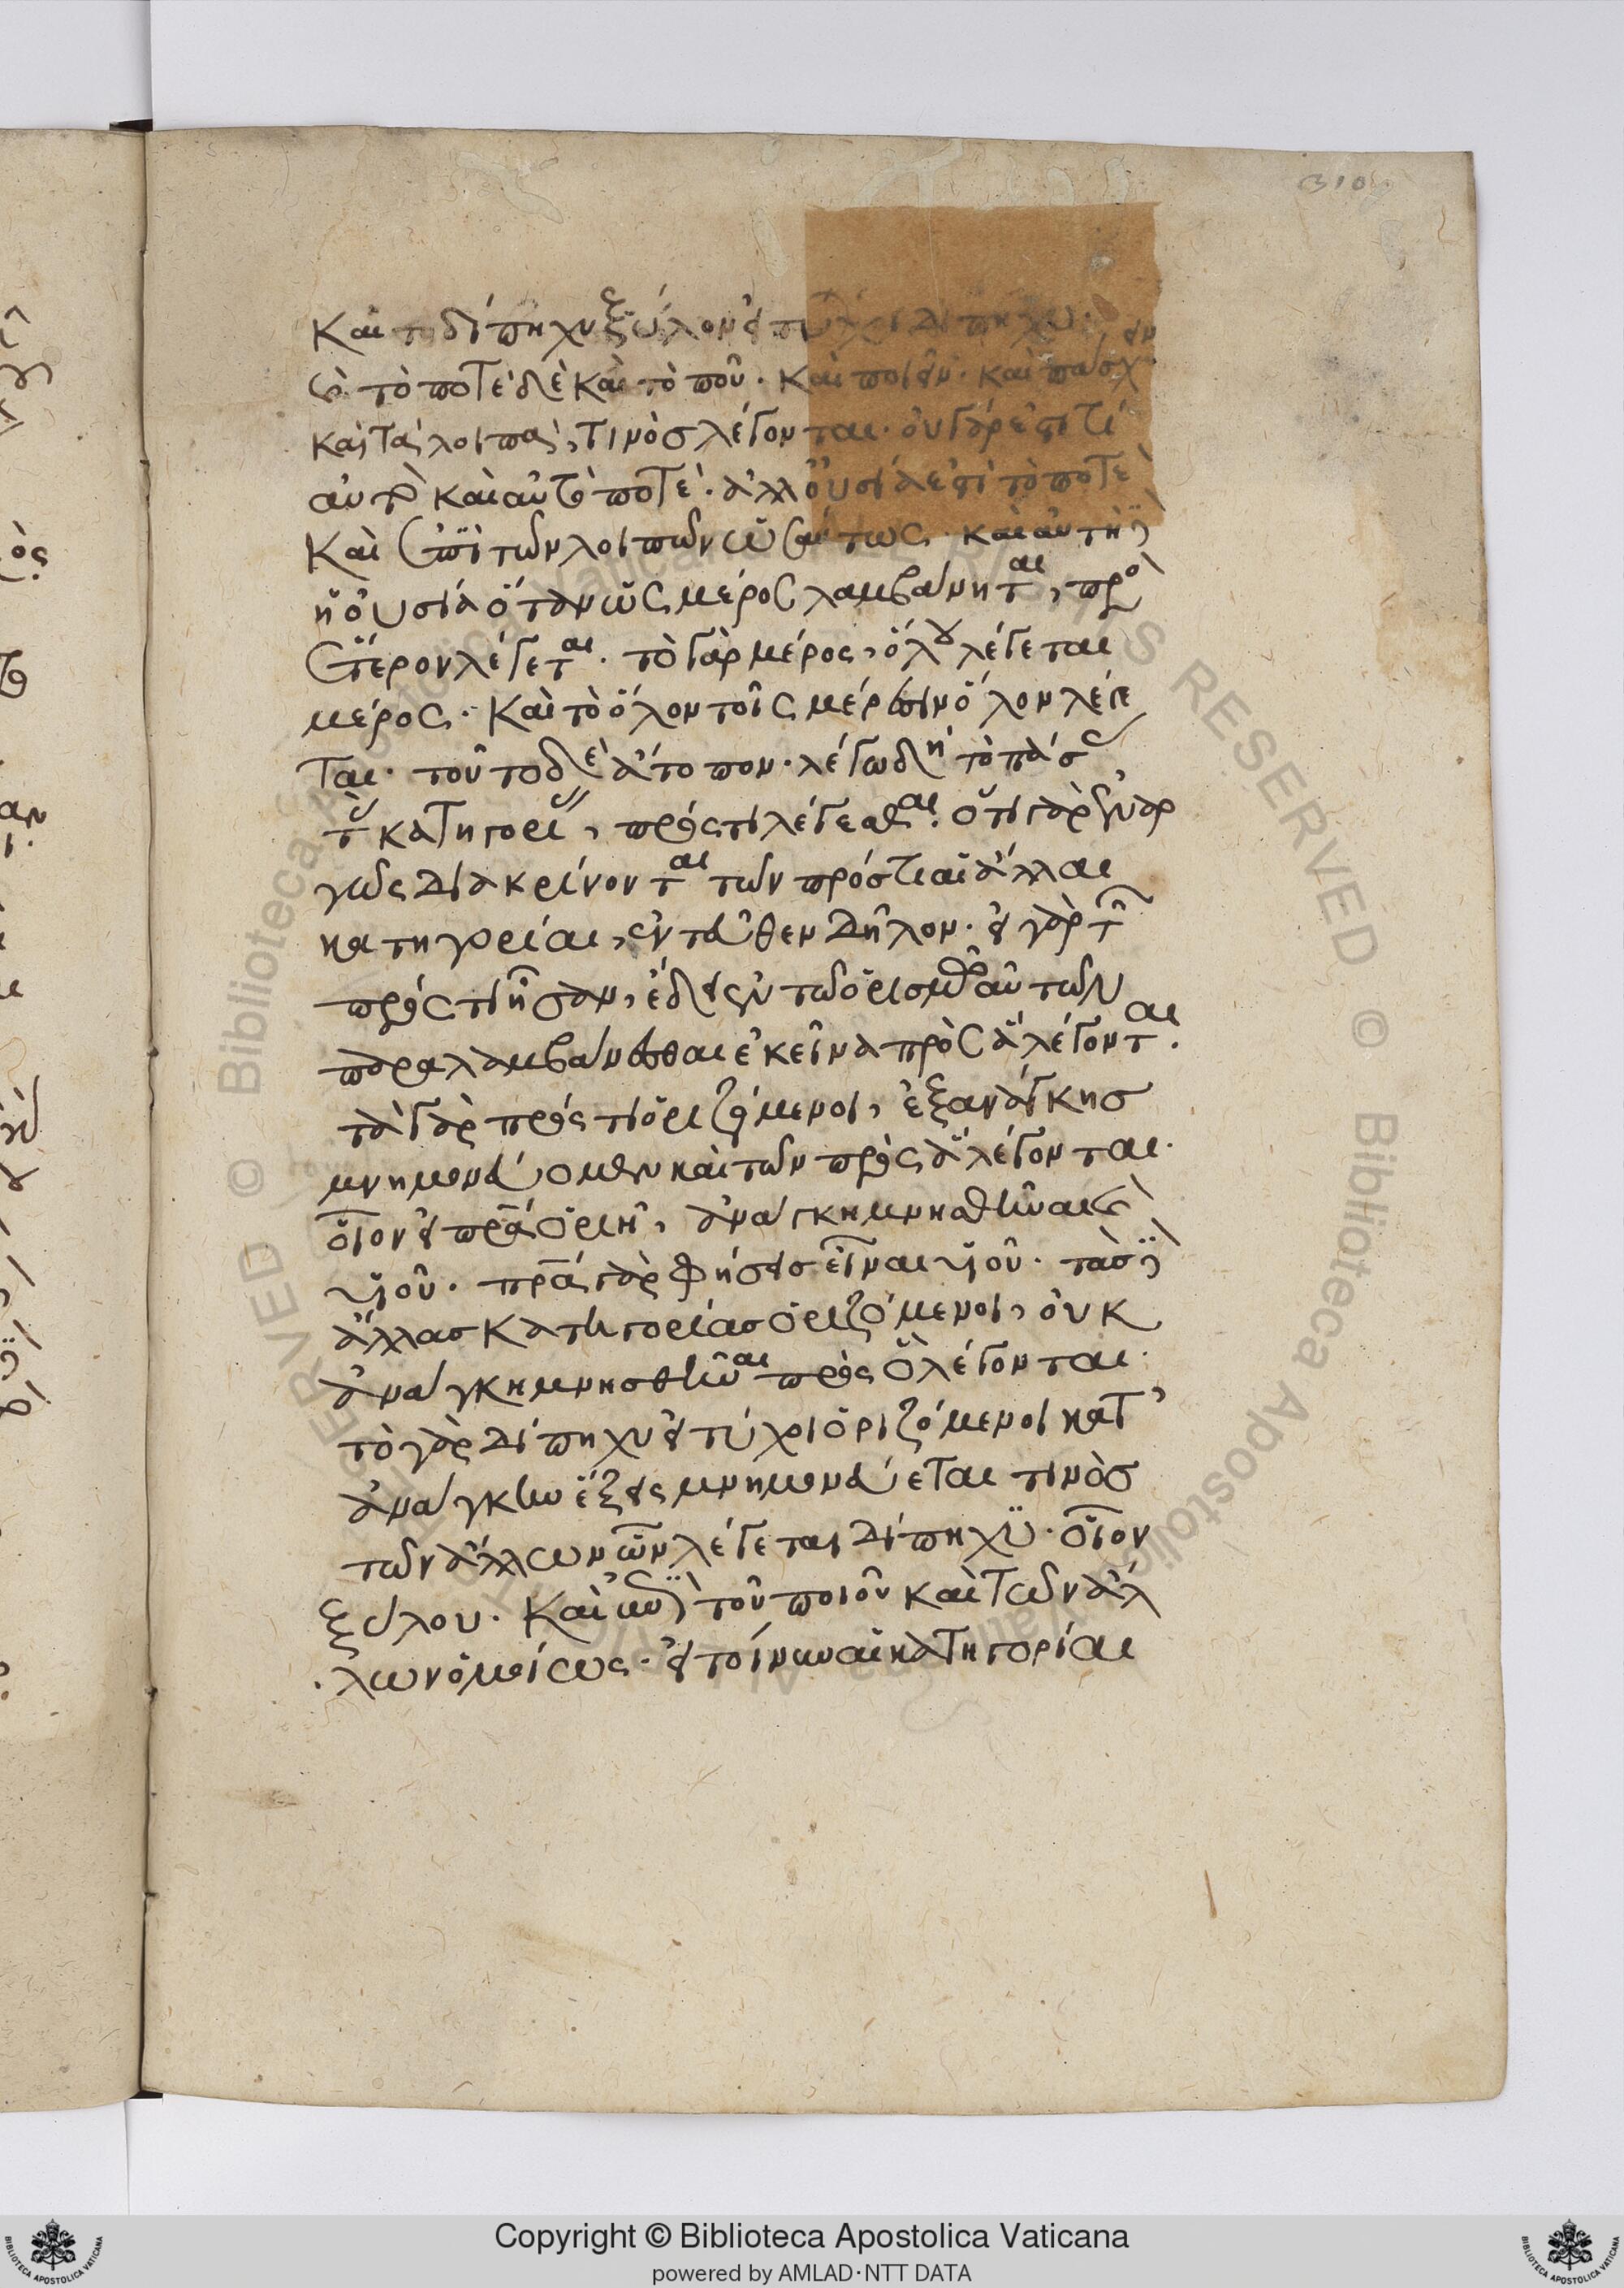 310
καὶ τὸ δίπηχυ ξύλον εἰ τύχοι δίπηχυ·
τὸ ποτὲ δὲ καὶ τὸ ποῦ· καὶ ποιεῖν· καὶ πάσχ
καὶ τὰ λοιπὰ, τινὸσ λέγονται· οὐ γὰρ ἐστί τι
αὐτὸ καθ αὑτὸ ποτέ· ἀλλ οὐσία ἐστὶ τὸ ποτὲ
καὶ ἐπὶ τῶν λοιπῶν ὡσαύτως· καὶ αὐτὴ
ἡ οὐσία ὅταν ὡς μέρος λαμβάνηται, πρὸ
ἕτερον λέγεται· τὸ γὰρ μέρος, ὅλου λέγεται
μέρος· καὶ τὸ ὅλον τοῖς μέρεσιν ὅλον λέγε
ται· τοῦτο δὲ ἄτοπον· λέγω δὴ τὸ πάσ
τ κατηγορί, πρός τι λέγεσθαι· ὅτι γὰρ ἐναρ
γῶς διακρίνονται τῶν πρόσ τι αἱ ἄλλαι
κατηγορίαι, ἐντεῦθεν δῆλον· εἰ γὰρ τ
πρός τι ἦσαν, ἔδει ἐν τῶ ὁρισμῶ αὐτῶν
παραλαμβάνεσθαι ἐκεῖνα πρὸς ἃ λέγονται·
τὰ γὰρ πρός τι ὁριζόμενοι, ἐξ ἀνάγκησ
μνημονεύομεν καὶ τῶν πρὸς ἃ λέγονται·
οἷον εἰ πρα ὁρι, ἀνάγκη μνησθῆναι
υἱοῦ· πρα γὰρ φήσεισ εἶναι υἱοῦ· τὰσ
ἄλλασ κατηγορίασ ὁριζόμενοι, οὐκ
ἀνάγκη μνησθῆναι πρὸς ὃ λέγονται·
τὸ γὰρ δίπηχυ εἰ τύχοι ὁριζόμενοι κατ
ἀνάγκην ἕξεις μνημονεύεται τινὸσ
τῶν ἄλλων ὧν λέγεται δίπηχυ· οἷον
ξύλου· καὶ ἐπὶ τοῦ ποιοῦ καὶ τῶν ἄλ
λων ὁμοίως· εἰ τοίνυν αἱ κατηγορίαι
Copyright © Biblioteca Apostolica Vaticana
powered by AMLAD·NTT DATA